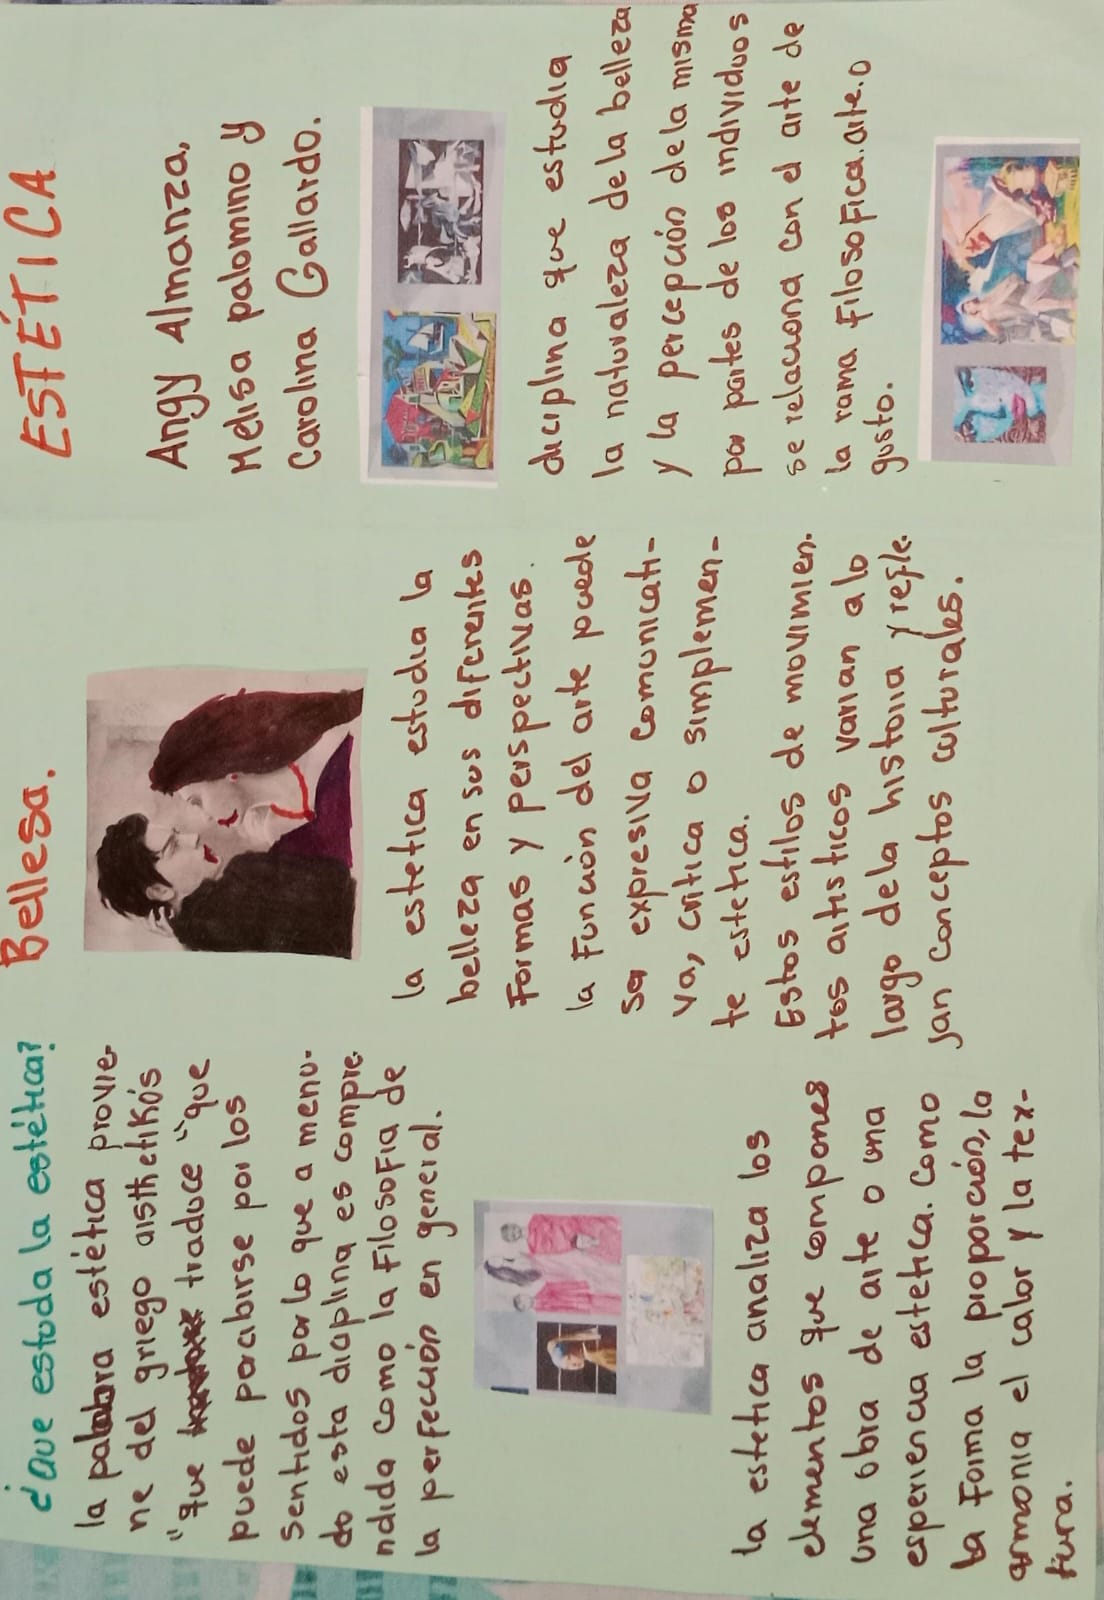 ¿Que estoda la estética?
la palabra estética provie-
ne del griego aisthetikós
"que traduce "que
puede porcibirse por los
sentidos por lo que a menu-
do esta diciplina es compre-
ndida como la Filosofia de
la perfección en general.
la estetica analiza los
elementos que compones
una obra de arte o una
esperiencia estetica. como
la Forma la proporción, la
armonia el calor y la tex-
tura.
Bellesa.
la estetica estudia la
belleza en sus diferentes
Formas y perspectivas.
la Función del arte puede
ser expresiva comunicati-
va, critica o simplemen-
te estetica.
Estos estilos de movimien-
tos artisticos varian a lo
largo de la historia y refle-
jan conceptos culturales.
ESTÉTICA
Angy Almanza,
Melisa palomino y
Carolina Gallardo.
diciplina que estudia
la naturaleza de la belleza
y la percepción de la misma
por partes de los individuos
se relaciona con el arte de
la rama Filosofica. arte. o
gusto.